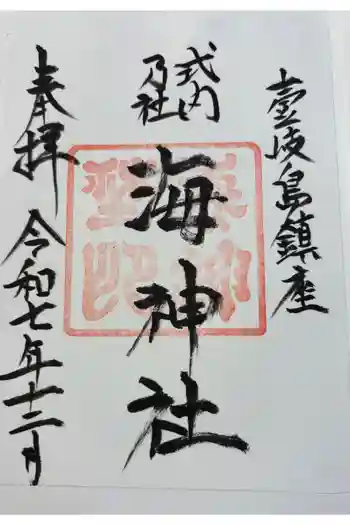 壹岐島鎮座
式内
乃社
海神社
奉拝
令和七年十二月